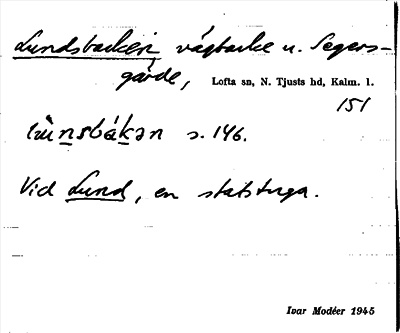 Lundsbacken vägbacke u. Segers-
gärde, Lofta sn, N. Tjusts hd, Kalm. l.
151
lùnsbák̲ən s. 146.
Vid Lund, en statstuga.
Ivar Modéer 1945